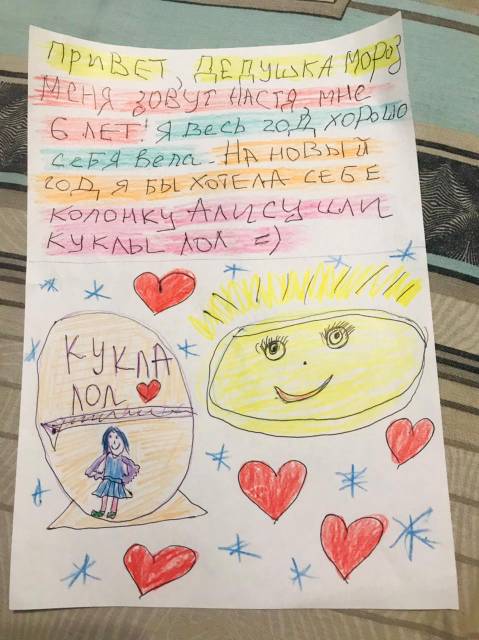 ПРИВЕТ, ДЕДУШКА МОРОЗ
МЕНЯ ЗОВУТ НАСТЯ, МНЕ
6 ЛЕТ! Я ВЕСЬ ГОД ХОРОШО
СЕБЯ ВЕЛА. НА НОВЫЙ
ГОД Я БЫ ХОТЕЛА СЕБЕ
КОЛОНКУ АЛИСУ ИЛИ
КУКЛЫ ЛОЛ =)
КУКЛА
ЛОЛ